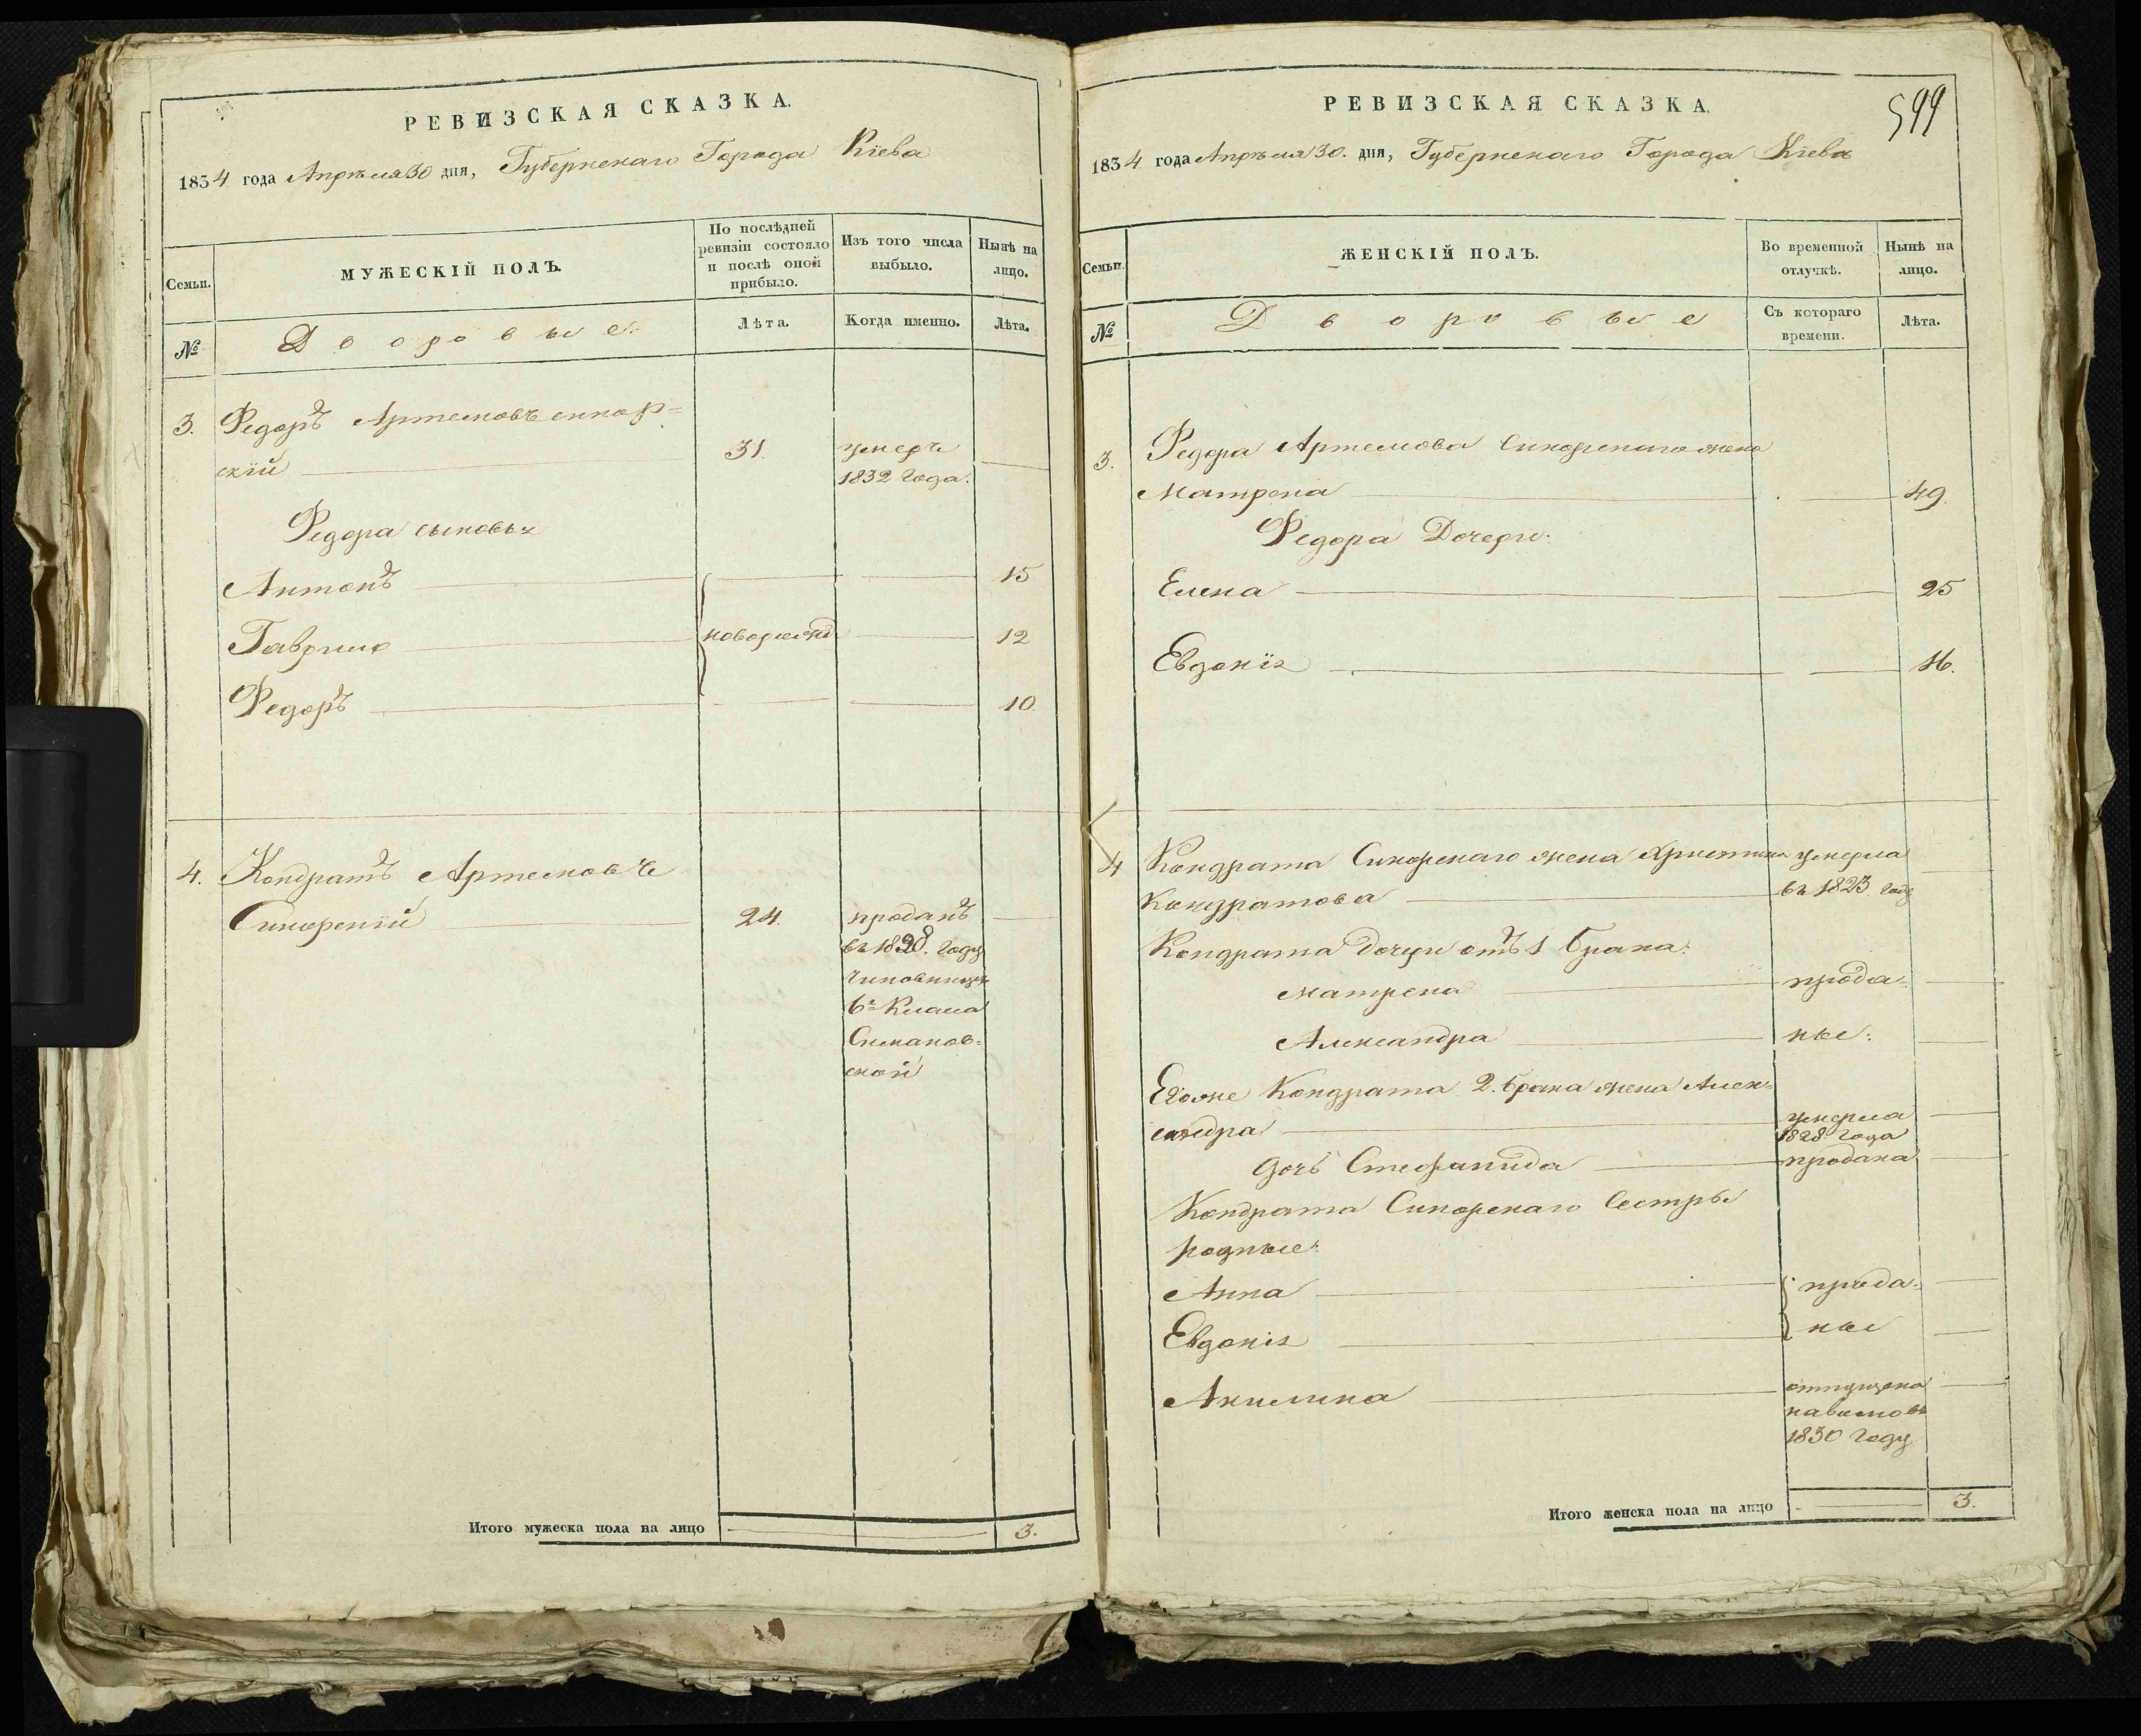 РЕВИЗСКАЯ СКАЗКА.
1834 года Апрѣля 30 дня, Губернскаго Города Кіева
Семьи.
МУЖЕСКІЙ ПОЛЪ.
По послѣдней
ревизіи состояло
и послѣ оной
прибыло.
Изъ того числа
выбыло.
Нынѣ на
лицо.
№
Дворовые.
Лѣта.
Когда именно.
Лѣта.
3. Федоръ Артемовъ сикор=
скій 31. умеръ
1832 года.
Федора сыновья
Антонъ 15
Гаврило новорожд 12
Федоръ 10.
4. Кондратъ Артемовъ
Сикорскій 24. проданъ
въ 1828. году
Чиновницѣ
6го Класа
ской
Итого мужеска пола на лицо 3.
РЕВИЗСКАЯ СКАЗКА.
599
1834 года Апрѣля 30. дня, Губернскаго Города Кіева
Семьи.
ЖЕНСКІЙ ПОЛЪ.
Во временной
отлучкѣ.
Нынѣ на
лицо.
№
Дворовые
Съ котораго
времени.
Лѣта.
3. Федора Артемова Сикорскаго жена
Матрена 49.
Федора Дочери.
Елена 25
Евдокія 16.
4 Кондрата Сикорскаго жена Христина умерла
Кондратова въ 1823 году
Кондрата дочери отъ 1 брака:
Матрена прода=
Александра ные.
Егоже Кондрата 2. брака жена Алек=
сандра умерла
1828 года
дочь Стефанида продана
Кондрата Сикорскаго Сестры
родные:
Анна прода=
Евдокія ные
Акилина отпущена
наволю въ
1830 году
Итого женска пола на лицо 3.